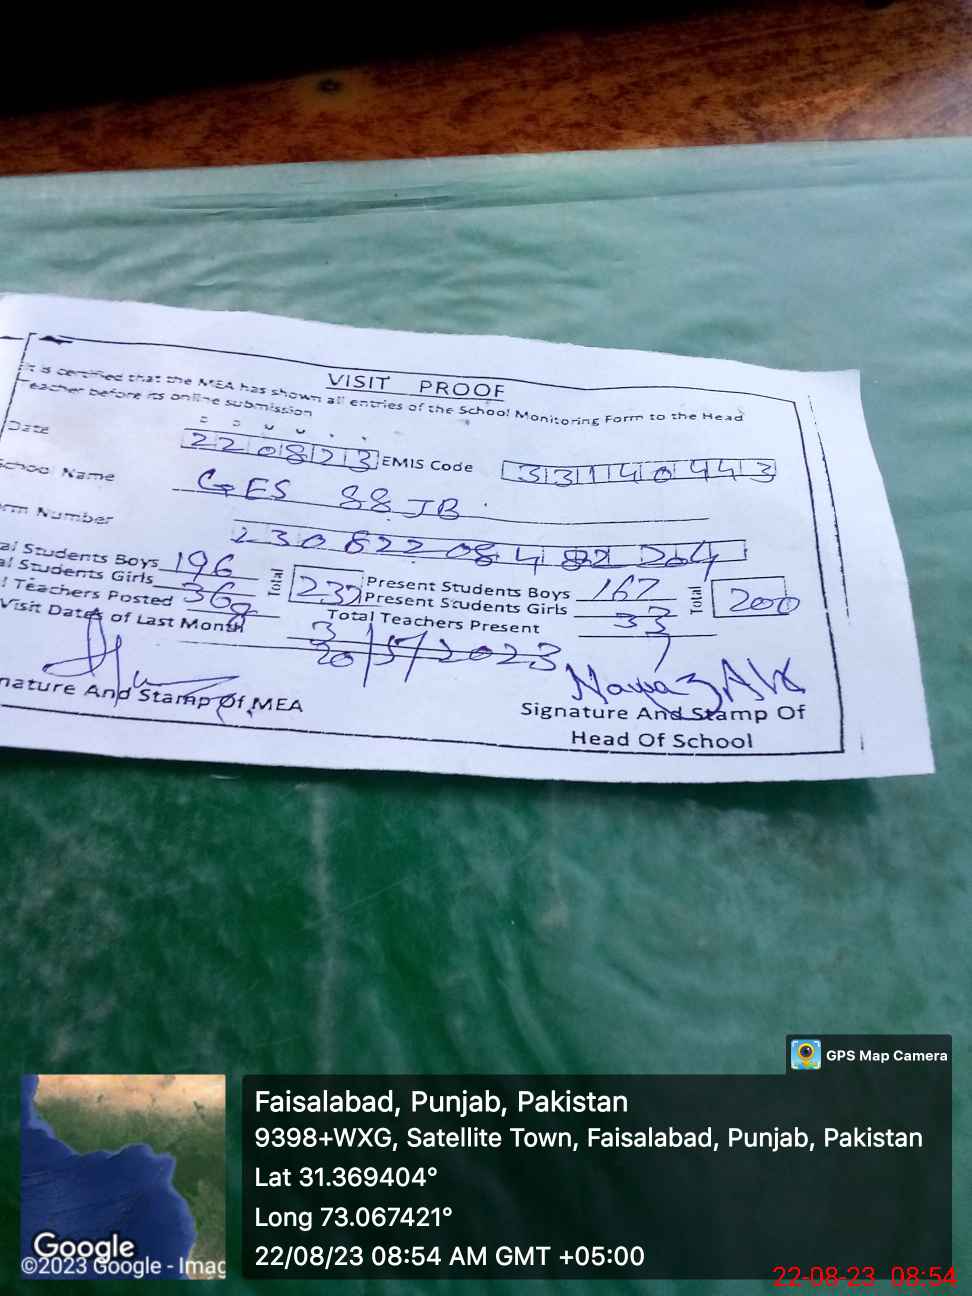 VISIT PROOF
It is certified that the MEA has shown all entries of the School Monitoring Form to the Head
Teacher before its online submission
Date 220823 EMIS Code 33140443
School Name GES 88 JB
rm Number
al Students Boys 196 Total 232 Present Students Boys 167 Total 200
al Students Girls 36 Present Students Girls 33
l Teachers Posted 8 Total Teachers Present 7
Visit Dates of Last Month 20/5/2023
nature And Stamp Of MEA
Nawaz Ali
Signature And Stamp Of
Head Of School
GPS Map Camera
Faisalabad, Punjab, Pakistan
9398+WXG, Satellite Town, Faisalabad, Punjab, Pakistan
Lat 31.369404°
Long 73.067421°
22/08/23 08:54 AM GMT +05:00
Google
©2023 Google - Imag
22-08-23 08:54